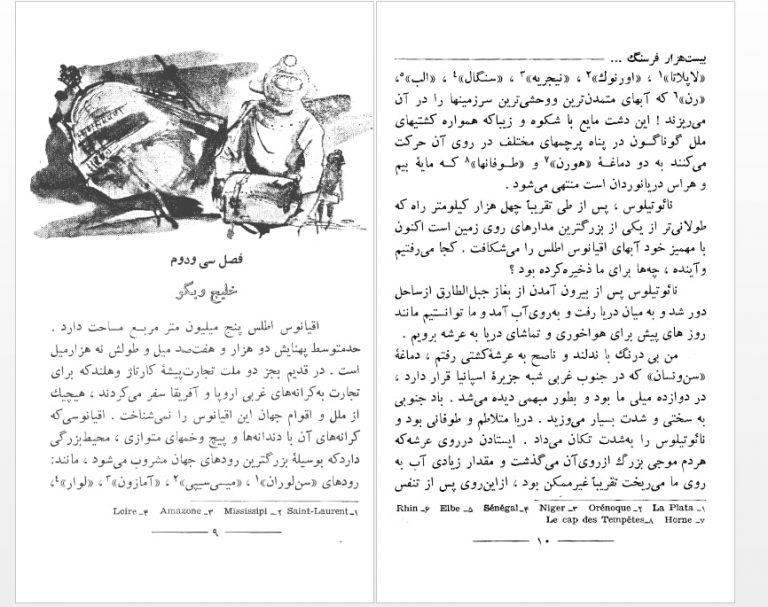 فصل سی ودوم
خلیج ویگو
اقیانوس اطلس پنج میلیون متر مربع مساحت دارد .
حدمتوسط پهنایش دو هزار و هفت‌صد میل و طولش نه هزارمیل
است . در قدیم بجز دو ملت تجارت‌پیشهٔ کارتاژ وهلندکه برای
تجارت به‌کرانه‌های غربی اروپا و آفریقا سفر می‌کردند ، هیچیک
از ملل و اقوام جهان این اقیانوس را نمی‌شناخت . اقیانوسی‌که
کرانه‌های آن با دندانه‌ها و پیچ وخمهای متوازی ، محیط‌بزرگی
داردکه بوسیلهٔ بزرگترین رودهای جهان مشروب می‌شود ، مانند:
رودهای «سن‌لوران»۱ ، «میسی‌سیپی»۲ ، «آمازون»۳ ، «لوار»۴،
۱_ Saint-Laurent ۲_ Mississipi ۳_ Amazone ۴_ Loire
۹
بیست‌هزار فرسنگ ...
«لاپلاتا»۱ ، «اورنوك»۲ ، «نیجریه»۳ ، «سنگال»۴ ، «الب»۵،
«رن»۶ که آبهای متمدن‌ترین ووحشی‌ترین سرزمینها را در آن
می‌ریزند ! این دشت مایع با شکوه و زیباکه همواره کشتیهای
ملل گوناگون در پناه پرچمهای مختلف در روی آن حرکت
می‌کنند به دو دماغهٔ «هورن»۷ و «طوفانها»۸ که مایهٔ بیم
و هراس دریانوردان است منتهی می‌شود .
نائوتیلوس ، پس از طی تقریباً چهل هزار کیلومتر راه که
طولانی‌تر از یکی از بزرگترین مدارهای روی زمین است اکنون
با مهمیز خود آبهای اقیانوس اطلس را می‌شکافت . کجا می‌رفتیم
وآینده ، چه‌ها برای ما ذخیره‌کرده بود ؟
نائوتیلوس پس از بیرون آمدن از بغاز جبل‌الطارق ازساحل
دور شد و به میان دریا رفت و به‌روی‌آب آمد و ما توانستیم مانند
روز های پیش برای هواخوری و تماشای دریا به عرشه برویم .
من بی درنگ با ندلند و ناصح به عرشهٔ‌کشتی رفتم ، دماغهٔ
«سن‌ونسان» که در جنوب غربی شبه جزیرهٔ اسپانیا قرار دارد ،
در دوازده میلی ما بود و بطور مبهمی دیده می‌شد . باد جنوبی
به سختی و شدت بسیار می‌وزید . دریا متلاطم و طوفانی بود و
نائوتیلوس را به‌شدت تکان می‌داد . ایستادن درروی عرشه‌که
هردم موجی بزرگ ازروی‌آن می‌گذشت و مقدار زیادی آب به
روی ما می‌ریخت تقریباً غیرممکن بود ، ازاین‌روی پس از تنفس
۱_ La Plata ۲_ Orénoque ۳_ Niger ۴_ Sénégal ۵_ Elbe ۶_ Rhin
۷_ Horne ۸_ Le cap des Tempêtes
۱۰